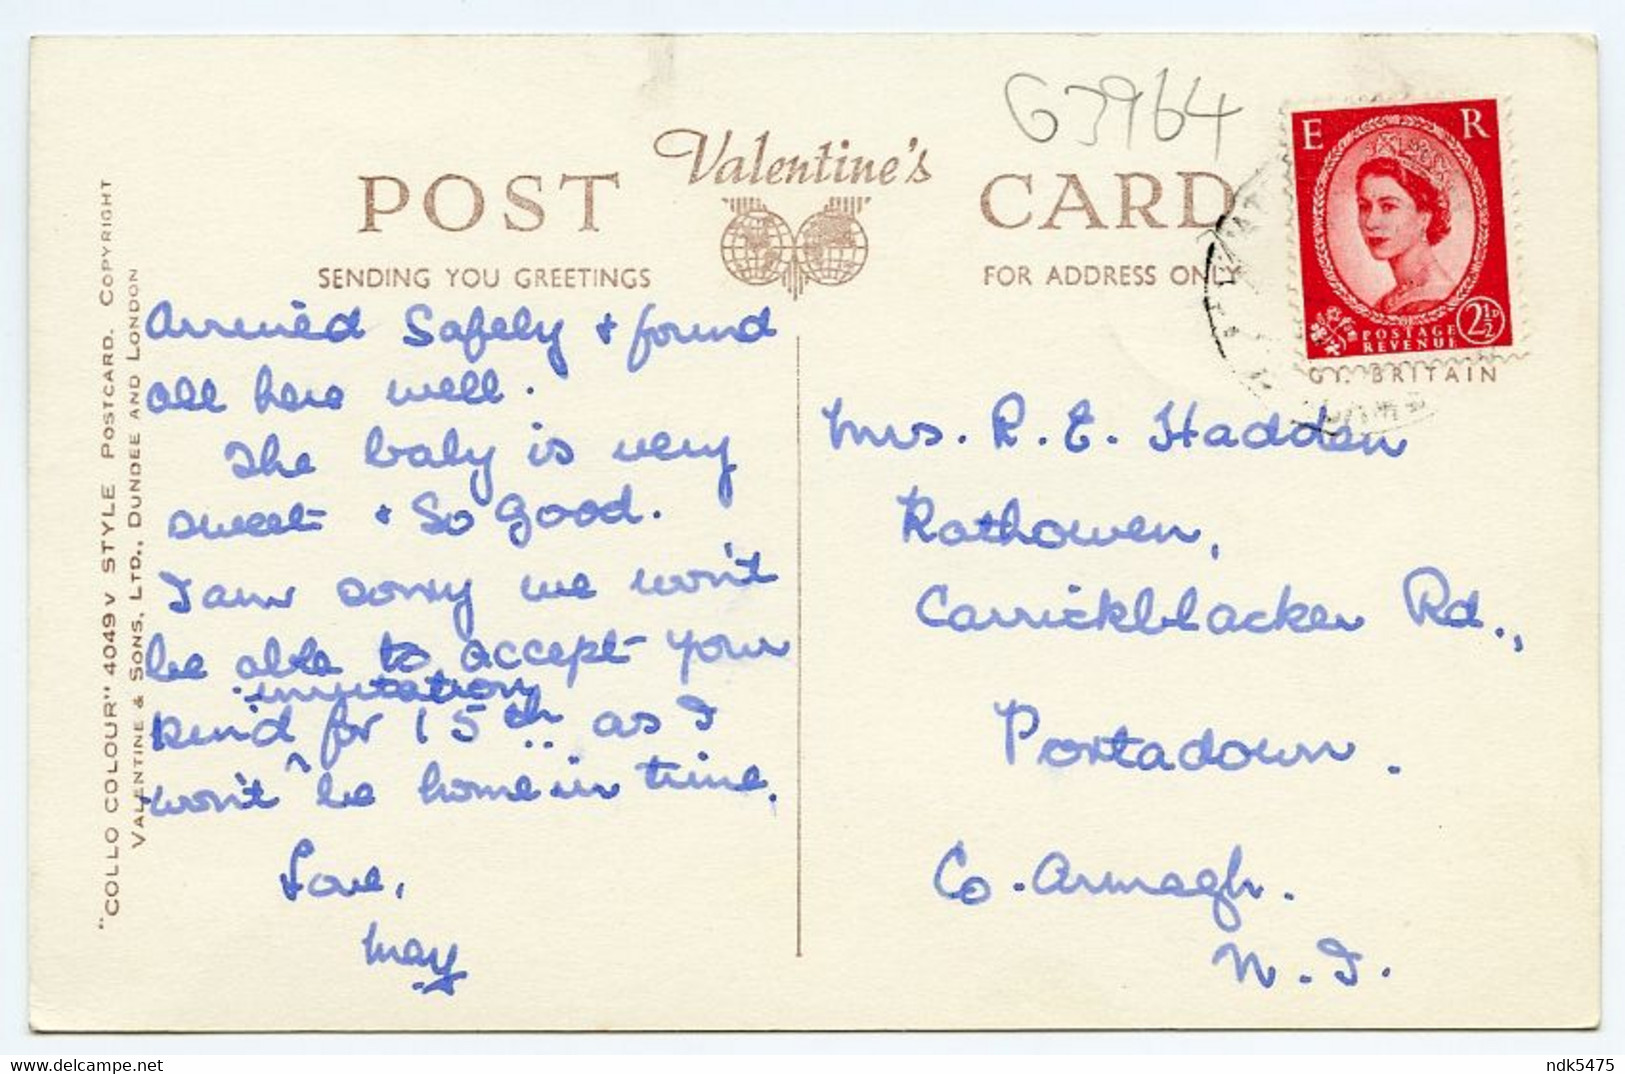 G3964
POST Valentine's CARD
SENDING YOU GREETINGS
FOR ADDRESS ONLY
E R
POSTAGE
REVENUE
2½D
GT. BRITAIN
"COLLO COLOUR" 4049V STYLE POSTCARD. COPYRIGHT
VALENTINE & SONS, LTD., DUNDEE AND LONDON
Arrived Safely & found
all here well.
The baby is very
sweet & so good.
I am sorry we won't
be able to accept your
invitation
kind ^ for 15th as I
won't be home in time.
Love,
May
Mrs. R. E. Hadden
Rathowen,
Carrickblacker Rd.,
Portadown.
Co. Armagh.
N. I.
hippostcard.com
ndk5475